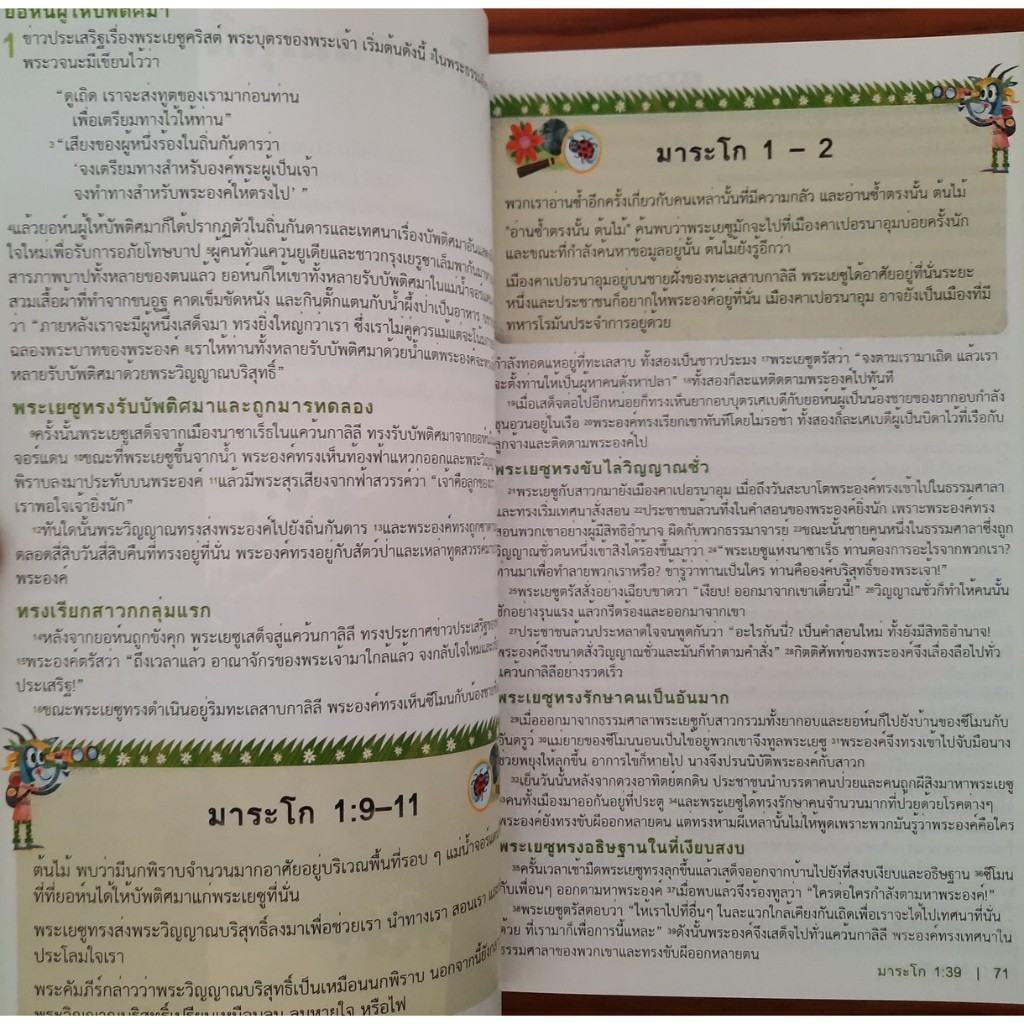 ยอห์นผู้ให้บัพติศมา
1 ข่าวประเสริฐเรื่องพระเยซูคริสต์ พระบุตรของพระเจ้า เริ่มต้นดังนี้ 2ในพระธรรม
พระวจนะมีเขียนไว้ว่า
“ดูเถิด เราจะส่งทูตของเรามาก่อนท่าน
เพื่อเตรียมทางไว้ให้ท่าน”
3 “เสียงของผู้หนึ่งร้องในถิ่นกันดารว่า
‘จงเตรียมทางสำหรับองค์พระผู้เป็นเจ้า
จงทำทางสำหรับพระองค์ให้ตรงไป’ ”
4แล้วยอห์นผู้ให้บัพติศมาก็ได้ปรากฏตัวในถิ่นกันดารและเทศนาเรื่องบัพติศมาอัน
ใจใหม่เพื่อรับการอภัยโทษบาป 5ผู้คนทั่วแคว้นยูเดียและชาวกรุงเยรูซาเล็มพากันมา
สารภาพบาปทั้งหลายของตนแล้ว ยอห์นก็ให้เขาทั้งหลายรับบัพติศมาในแม่น้ำจอร์แดน
สวมเสื้อผ้าที่ทำจากขนอูฐ คาดเข็มขัดหนัง และกินตั๊กแตนกับน้ำผึ้งป่าเป็นอาหาร
ว่า “ภายหลังเราจะมีผู้หนึ่งเสด็จมา ทรงยิ่งใหญ่กว่าเรา ซึ่งเราไม่คู่ควรแม้แต่จะโน้ม
ฉลองพระบาทของพระองค์ 8เราให้ท่านทั้งหลายรับบัพติศมาด้วยน้ำแต่พระองค์จะ
หลายรับบัพติศมาด้วยพระวิญญาณบริสุทธิ์”
พระเยซูทรงรับบัพติศมาและถูกมารทดลอง
9ครั้งนั้นพระเยซูเสด็จจากเมืองนาซาเร็ธในแคว้นกาลิลี ทรงรับบัพติศมาจากยอห์น
จอร์แดน 10ขณะที่พระเยซูขึ้นจากน้ำ พระองค์ทรงเห็นท้องฟ้าแหวกออกและพระวิญญาณ
พิราบลงมาประทับบนพระองค์ 11แล้วมีพระสุรเสียงจากฟ้าสวรรค์ว่า “เจ้าคือลูกของ
เราพอใจเจ้ายิ่งนัก”
12ทันใดนั้นพระวิญญาณทรงส่งพระองค์ไปยังถิ่นกันดาร 13และพระองค์ทรงถูกซาตาน
ตลอดสี่สิบวันสี่สิบคืนที่ทรงอยู่ที่นั่น พระองค์ทรงอยู่กับสัตว์ป่าและเหล่าทูตสวรรค์มา
พระองค์
ทรงเรียกสาวกกลุ่มแรก
14หลังจากยอห์นถูกขังคุก พระเยซูเสด็จสู่แคว้นกาลิลี ทรงประกาศข่าวประเสริฐของ
15พระองค์ตรัสว่า “ถึงเวลาแล้ว อาณาจักรของพระเจ้ามาใกล้แล้ว จงกลับใจใหม่และ
ประเสริฐ!”
16ขณะพระเยซูทรงดำเนินอยู่ริมทะเลสาบกาลิลี พระองค์ทรงเห็นซีโมนกับน้องชาย
มาระโก 1:9–11
ต้นไม้ พบว่ามีนกพิราบจำนวนมากอาศัยอยู่บริเวณพื้นที่รอบ ๆ แม่น้ำจอร์แดน
ที่ที่ยอห์นได้ให้บัพติศมาแก่พระเยซูที่นั่น
พระเยซูทรงส่งพระวิญญาณบริสุทธิ์ลงมาเพื่อช่วยเรา นำทางเรา สอนเรา และ
ปลอบโลมใจเรา
พระคัมภีร์กล่าวว่าพระวิญญาณบริสุทธิ์เป็นเหมือนนกพิราบ นอกจากนี้ยัง
พระวิญญาณบริสุทธิ์เปรียบเหมือนลม ลมหายใจ หรือไฟ
มาระโก 1 – 2
พวกเราอ่านซ้ำอีกครั้งเกี่ยวกับคนเหล่านั้นที่มีความกลัว และอ่านซ้ำตรงนั้น ต้นไม้
"อ่านซ้ำตรงนั้น ต้นไม้" ค้นพบว่าพระเยซูมักจะไปที่เมืองคาเปอรนาอุมบ่อยครั้งนัก
และขณะที่กำลังค้นหาข้อมูลอยู่นั้น ต้นไม้ยังรู้อีกว่า
เมืองคาเปอรนาอุมอยู่บนชายฝั่งของทะเลสาบกาลิลี พระเยซูได้อาศัยอยู่ที่นั่นระยะ
หนึ่งและประชาชนก็อยากให้พระองค์อยู่ที่นั่น เมืองคาเปอรนาอุม อาจยังเป็นเมืองที่มี
ทหารโรมันประจำการอยู่ด้วย
กำลังทอดแหอยู่ที่ทะเลสาบ ทั้งสองเป็นชาวประมง 17พระเยซูตรัสว่า “จงตามเรามาเถิด แล้วเรา
จะตั้งท่านให้เป็นผู้หาคนดั่งหาปลา” 18ทั้งสองก็ละแหติดตามพระองค์ไปทันที
19เมื่อเสด็จต่อไปอีกหน่อยก็ทรงเห็นยากอบบุตรเศเบดีกับยอห์นผู้เป็นน้องชายของยากอบกำลัง
ชุนอวนอยู่ในเรือ 20พระองค์ทรงเรียกเขาทันทีโดยไม่รอช้า ทั้งสองก็ละเศเบดีผู้เป็นบิดาไว้ที่เรือกับ
ลูกจ้างและติดตามพระองค์ไป
พระเยซูทรงขับไล่วิญญาณชั่ว
21พระเยซูกับสาวกมายังเมืองคาเปอรนาอุม เมื่อถึงวันสะบาโตพระองค์ทรงเข้าไปในธรรมศาลา
และทรงเริ่มเทศนาสั่งสอน 22ประชาชนล้วนทึ่งในคำสอนของพระองค์ยิ่งนัก เพราะพระองค์ทรง
สอนพวกเขาอย่างผู้มีสิทธิอำนาจ ผิดกับพวกธรรมาจารย์ 23ขณะนั้นชายคนหนึ่งในธรรมศาลาซึ่งถูก
วิญญาณชั่วตนหนึ่งเข้าสิงได้ร้องขึ้นมาว่า 24“พระเยซูแห่งนาซาเร็ธ ท่านต้องการอะไรจากพวกเรา?
ท่านมาเพื่อทำลายพวกเราหรือ? ข้ารู้ว่าท่านเป็นใคร ท่านคือองค์บริสุทธิ์ของพระเจ้า!”
25พระเยซูตรัสสั่งอย่างเฉียบขาดว่า “เงียบ! ออกมาจากเขาเดี๋ยวนี้!” 26วิญญาณชั่วก็ทำให้คนนั้น
ชักอย่างรุนแรง แล้วกรีดร้องและออกมาจากเขา
27ประชาชนล้วนประหลาดใจจนพูดกันว่า “อะไรกันนี่? เป็นคำสอนใหม่ ทั้งยังมีสิทธิอำนาจ!
พระองค์ถึงขนาดสั่งวิญญาณชั่วและมันก็ทำตามคำสั่ง” 28กิตติศัพท์ของพระองค์จึงเลื่องลือไปทั่ว
แคว้นกาลิลีอย่างรวดเร็ว
พระเยซูทรงรักษาคนเป็นอันมาก
29เมื่อออกมาจากธรรมศาลาพระเยซูกับสาวกรวมทั้งยากอบและยอห์นก็ไปยังบ้านของซีโมนกับ
อันดรูว์ 30แม่ยายของซีโมนนอนเป็นไข้อยู่พวกเขาจึงทูลพระเยซู 31พระองค์จึงทรงเข้าไปจับมือนาง
ช่วยพยุงให้ลุกขึ้น อาการไข้ก็หายไป นางจึงปรนนิบัติพระองค์กับสาวก
32เย็นวันนั้นหลังจากดวงอาทิตย์ตกดิน ประชาชนนำบรรดาคนป่วยและคนถูกผีสิงมาหาพระเยซู
33คนทั้งเมืองมาออกันอยู่ที่ประตู 34และพระเยซูได้ทรงรักษาคนจำนวนมากที่ป่วยด้วยโรคต่างๆ
พระองค์ยังทรงขับผีออกหลายตน แต่ทรงห้ามผีเหล่านั้นไม่ให้พูดเพราะพวกมันรู้ว่าพระองค์คือใคร
พระเยซูทรงอธิษฐานในที่เงียบสงบ
35ครั้นเวลาเช้ามืดพระเยซูทรงลุกขึ้นแล้วเสด็จออกจากบ้านไปยังที่สงบเงียบและอธิษฐาน 36ซีโมน
กับเพื่อนๆ ออกตามหาพระองค์ 37เมื่อพบแล้วจึงร้องทูลว่า “ใครต่อใครกำลังตามหาพระองค์!”
38พระเยซูตรัสตอบว่า “ให้เราไปที่อื่นๆ ในละแวกใกล้เคียงกันเถิดเพื่อเราจะได้ไปเทศนาที่นั่น
ด้วย ที่เรามาก็เพื่อการนี้แหละ” 39ดังนั้นพระองค์จึงเสด็จไปทั่วแคว้นกาลิลี พระองค์ทรงเทศนาใน
ธรรมศาลาของพวกเขาและทรงขับผีออกหลายตน
มาระโก 1:39 | 71